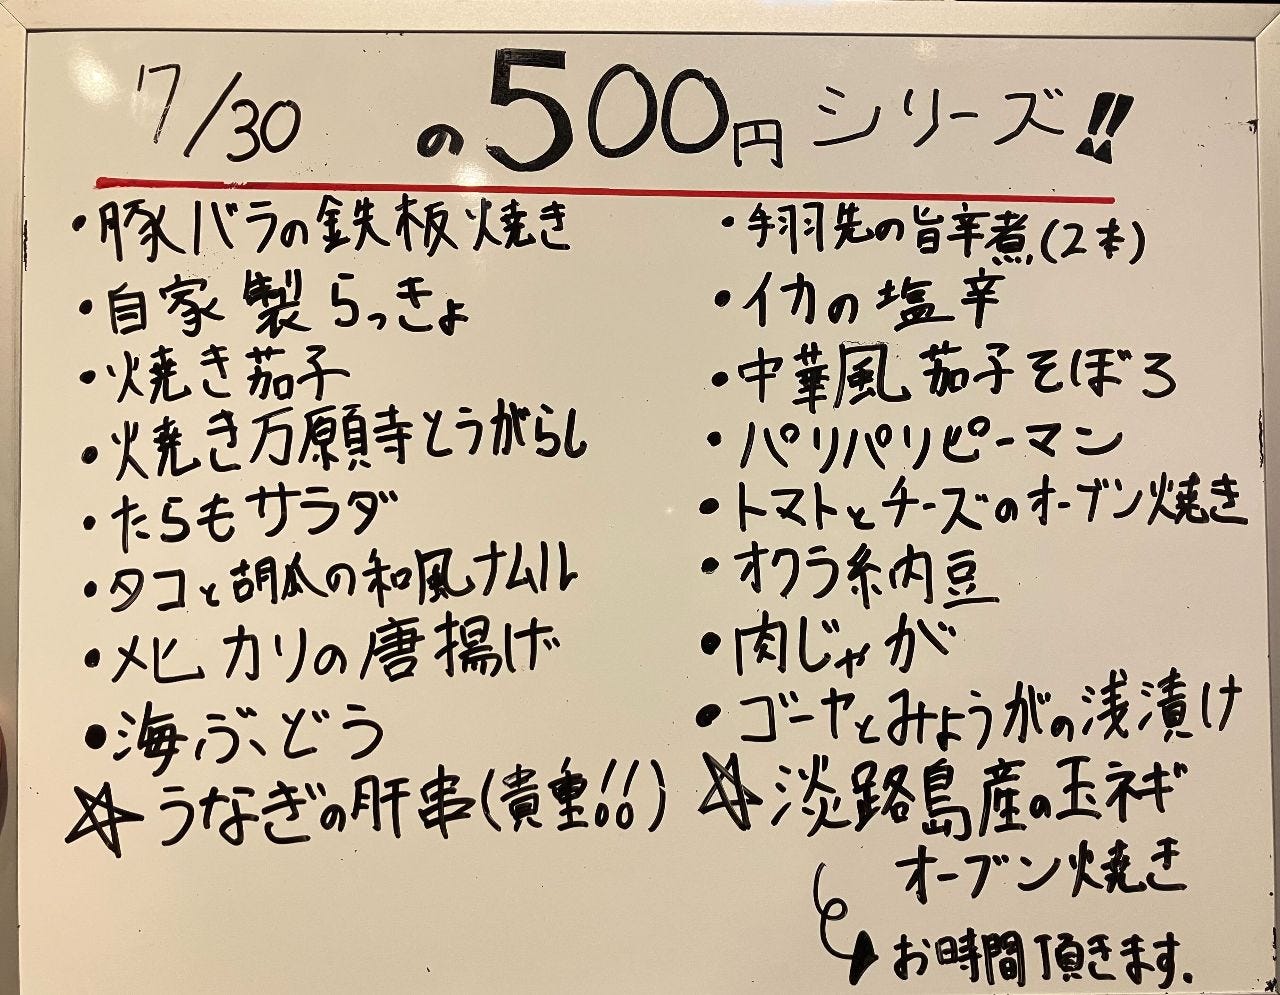 7/30 の500円シリーズ!!
・豚バラの鉄板焼き
・自家製らっきょ
・焼き茄子
・焼き万願寺とうがらし
・たらもサラダ
・タコと胡瓜の和風ナムル
・メヒカリの唐揚げ
・海ぶどう
☆うなぎの肝串(貴重!!)
・手羽先の旨辛煮(2本)
・イカの塩辛
・中華風茄子そぼろ
・パリパリピーマン
・トマトとチーズのオーブン焼き
・オクラ納豆
・肉じゃが
・ゴーヤとみょうがの浅漬け
☆淡路島産の玉ネギ
オーブン焼き
お時間頂きます.